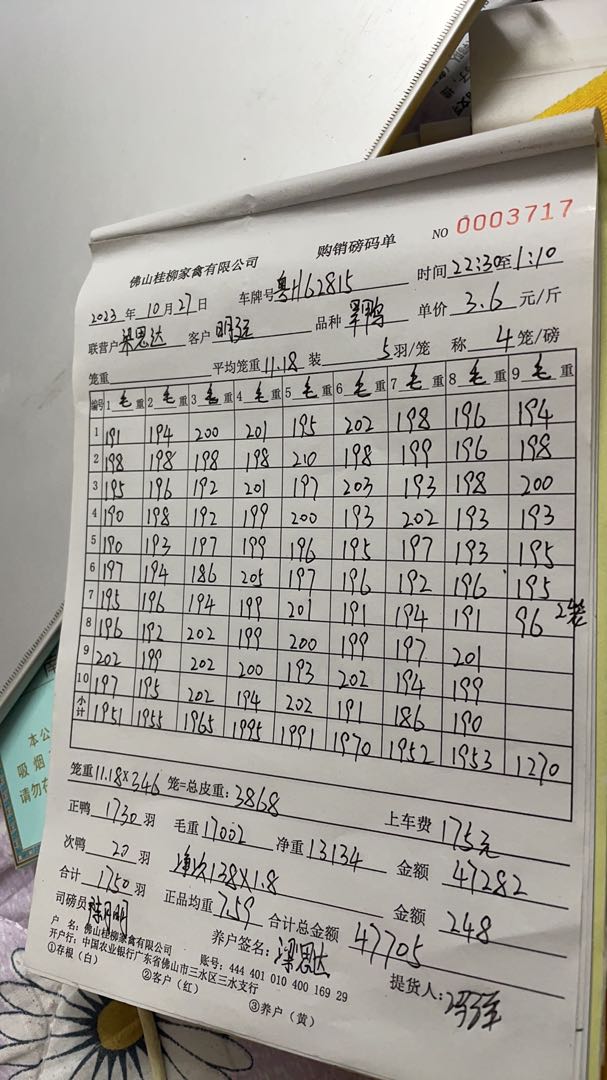 佛山桂柳家禽有限公司 购销磅码单 NO 0003717
2023 年 10 月 27 日 车牌号 粤H62815 时间 22:30至1:10
联营户 梁思达 客户 品种 单价 3.6 元/斤
笼重 平均笼重 11.18 装 5 羽/笼 称 4 笼/磅
编号 1 毛 重 2 毛 重 3 毛 重 4 毛 重 5 毛 重 6 毛 重 7 毛 重 8 毛 重 9 毛 重
1 191 194 200 201 195 202 198 196 194
2 198 198 198 198 210 198 199 196 198
3 195 196 192 201 197 203 193 198 200
4 190 198 192 199 200 193 202 193 193
5 190 193 197 199 196 195 197 193 195
6 197 194 186 205 197 196 192 196 195
7 195 196 194 199 201 191 194 191 96 2笼
8 196 192 202 199 200 199 197 201
9 202 199 202 200 193 202 194 199
10 197 195 202 194 202 191 186 190
小计 1951 1955 1965 1995 1991 1970 1952 1953 1270
笼重 11.18×346 笼=总皮重: 3868 上车费 175元
正鸭 1730 羽 毛重 17002 净重 13134 金额 47282
次鸭 20 羽 净次138×1.8 金额 248
合计 1750 羽 正品均重 7.59 合计总金额 47705
司磅员 陈月明 养户签名: 梁思达 提货人:
户 名: 佛山桂柳家禽有限公司 账号: 444 401 010 400 169 29
开户行: 中国农业银行广东省佛山市三水区三水支行
①存根（白） ②客户（红） ③养户（黄）
本公
吸烟
请勿在